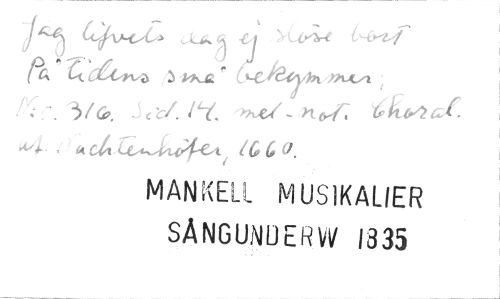 Jag lifvets dag ej slöse bort
På tidens små bekymmer;
No. 316. Sid. 14. mel-not. Choral.
af Nachtenhöfer, 1660.
MANKELL MUSIKALIER
SÅNGUNDERW 1835